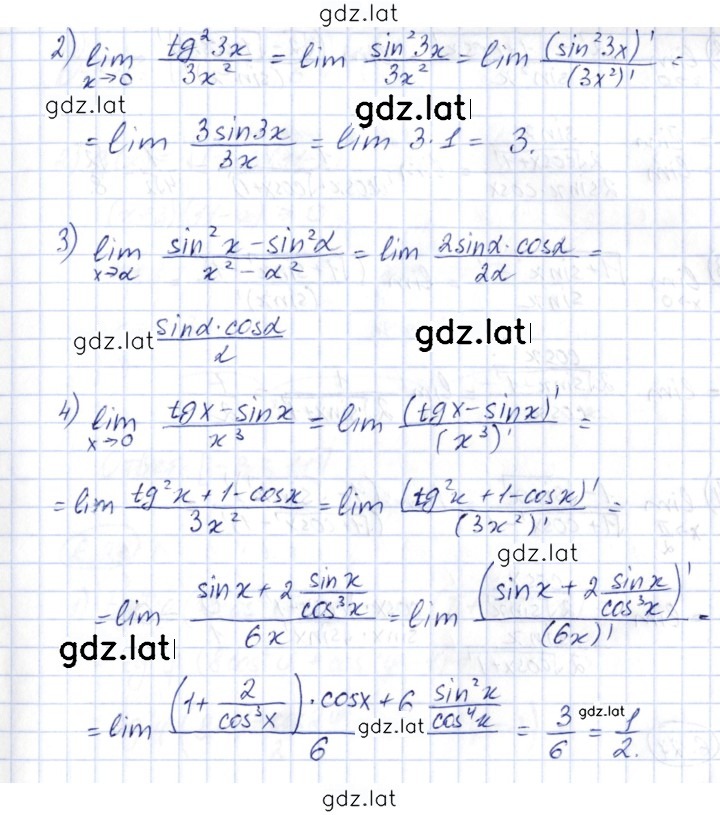 gdz.lat
2) lim x→0 tg²3x / 3x² = lim sin²3x / 3x² = lim (sin²3x)' / (3x²)' =
gdz.lat gdz.lat
= lim 3sin3x / 3x = lim 3·1 = 3.
3) lim x→α sin²x - sin²α / x² - α² = lim 2sinα·cosα / 2α =
gdz.lat sinα·cosα / α gdz.lat
4) lim x→0 tgx - sinx / x³ = lim (tgx - sinx)' / (x³)' =
= lim tg²x + 1 - cosx / 3x² = lim (tg²x + 1 - cosx)' / (3x²)' =
gdz.lat
= lim sinx + 2 sinx/cos³x / 6x = lim (sinx + 2 sinx/cos³x)' / (6x)' =
gdz.lat
= lim (1 + 2/cos³x)·cosx + 6 sin²x/cos⁴x / 6 = 3/6 = 1/2.
gdz.lat gdz.lat
gdz.lat